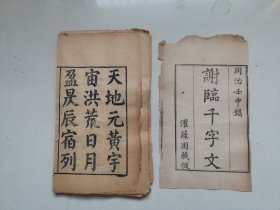 同治壬申鐫
謝臨千字文
園藏板
天地元黃宇
宙洪荒日月
盈昃辰宿列